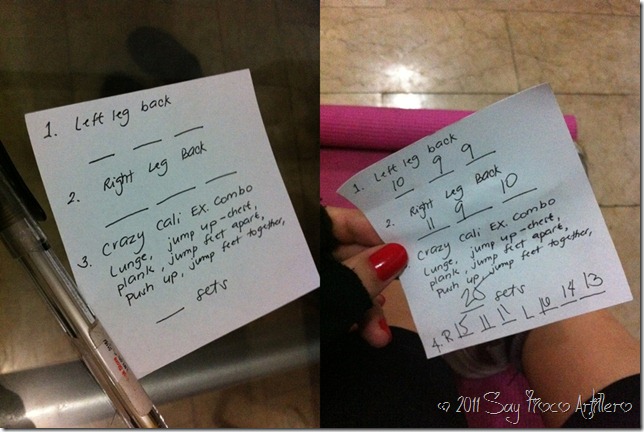 1. Left leg back
2. Right Leg Back
3. Crazy Cali Ex. Combo
Lunge, jump up-chest,
plank, jump feet apart,
Push up, jump feet together,
sets
1. Left leg back
10 9 9
2. Right Leg Back
11 9 10
Crazy Cali Ex. Combo
Lunge, jump up-chest,
plank, jump feet apart,
Push up, jump feet together,
20 sets
4. R 15 11 11 L 10 14 13
© 2011 Say Tioco Artillero